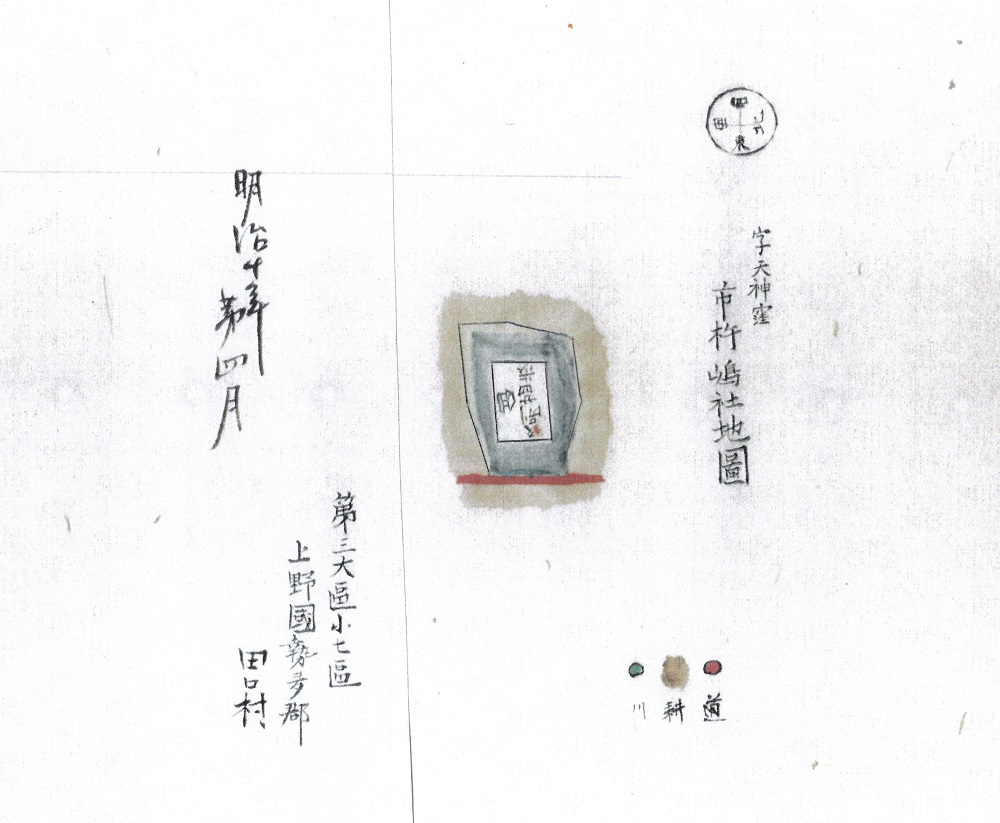 字天神窪
市杵嶋社地圖
西
北
東
道
耕
川
第三大區小七區
上野國勢多郡
田口村
明治十年第四月